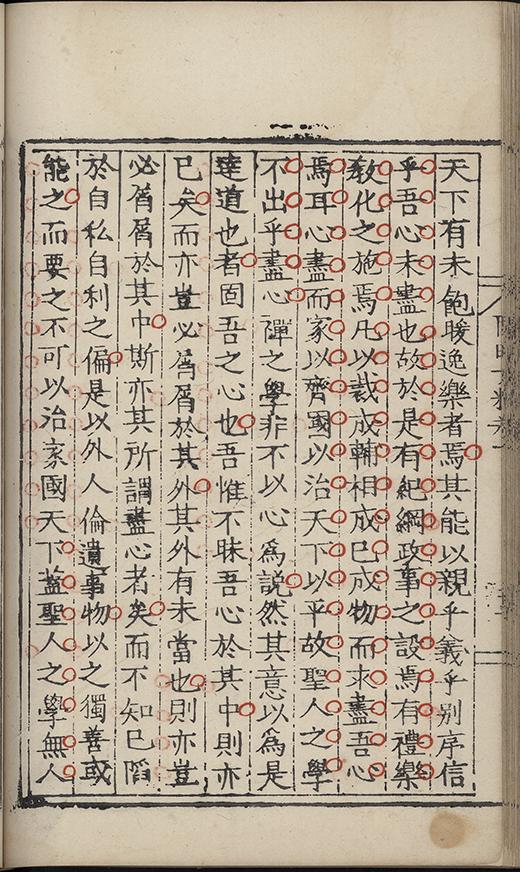 天下有未飽暖逸樂者焉其能以親乎義乎別序信
乎吾心未盡也故於是有紀綱政事之設焉有禮樂
敎化之施焉凡以裁成輔相成已成物而求盡吾心
焉耳心盡而家以齊國以治天下以平故聖人之學
不出乎盡心禪之學非不以心為說然其意以為是
達道也者固吾之心也吾惟不昧吾心於其中則亦
已矣而亦豈必屑屑於其外其外有未當也則亦豈
必屑屑於其中斯亦其所謂盡心者矣而不知已陷
於自私自利之偏是以外人倫遺事物以之獨善或
能之而要之不可以治家國天下蓋聖人之學無人